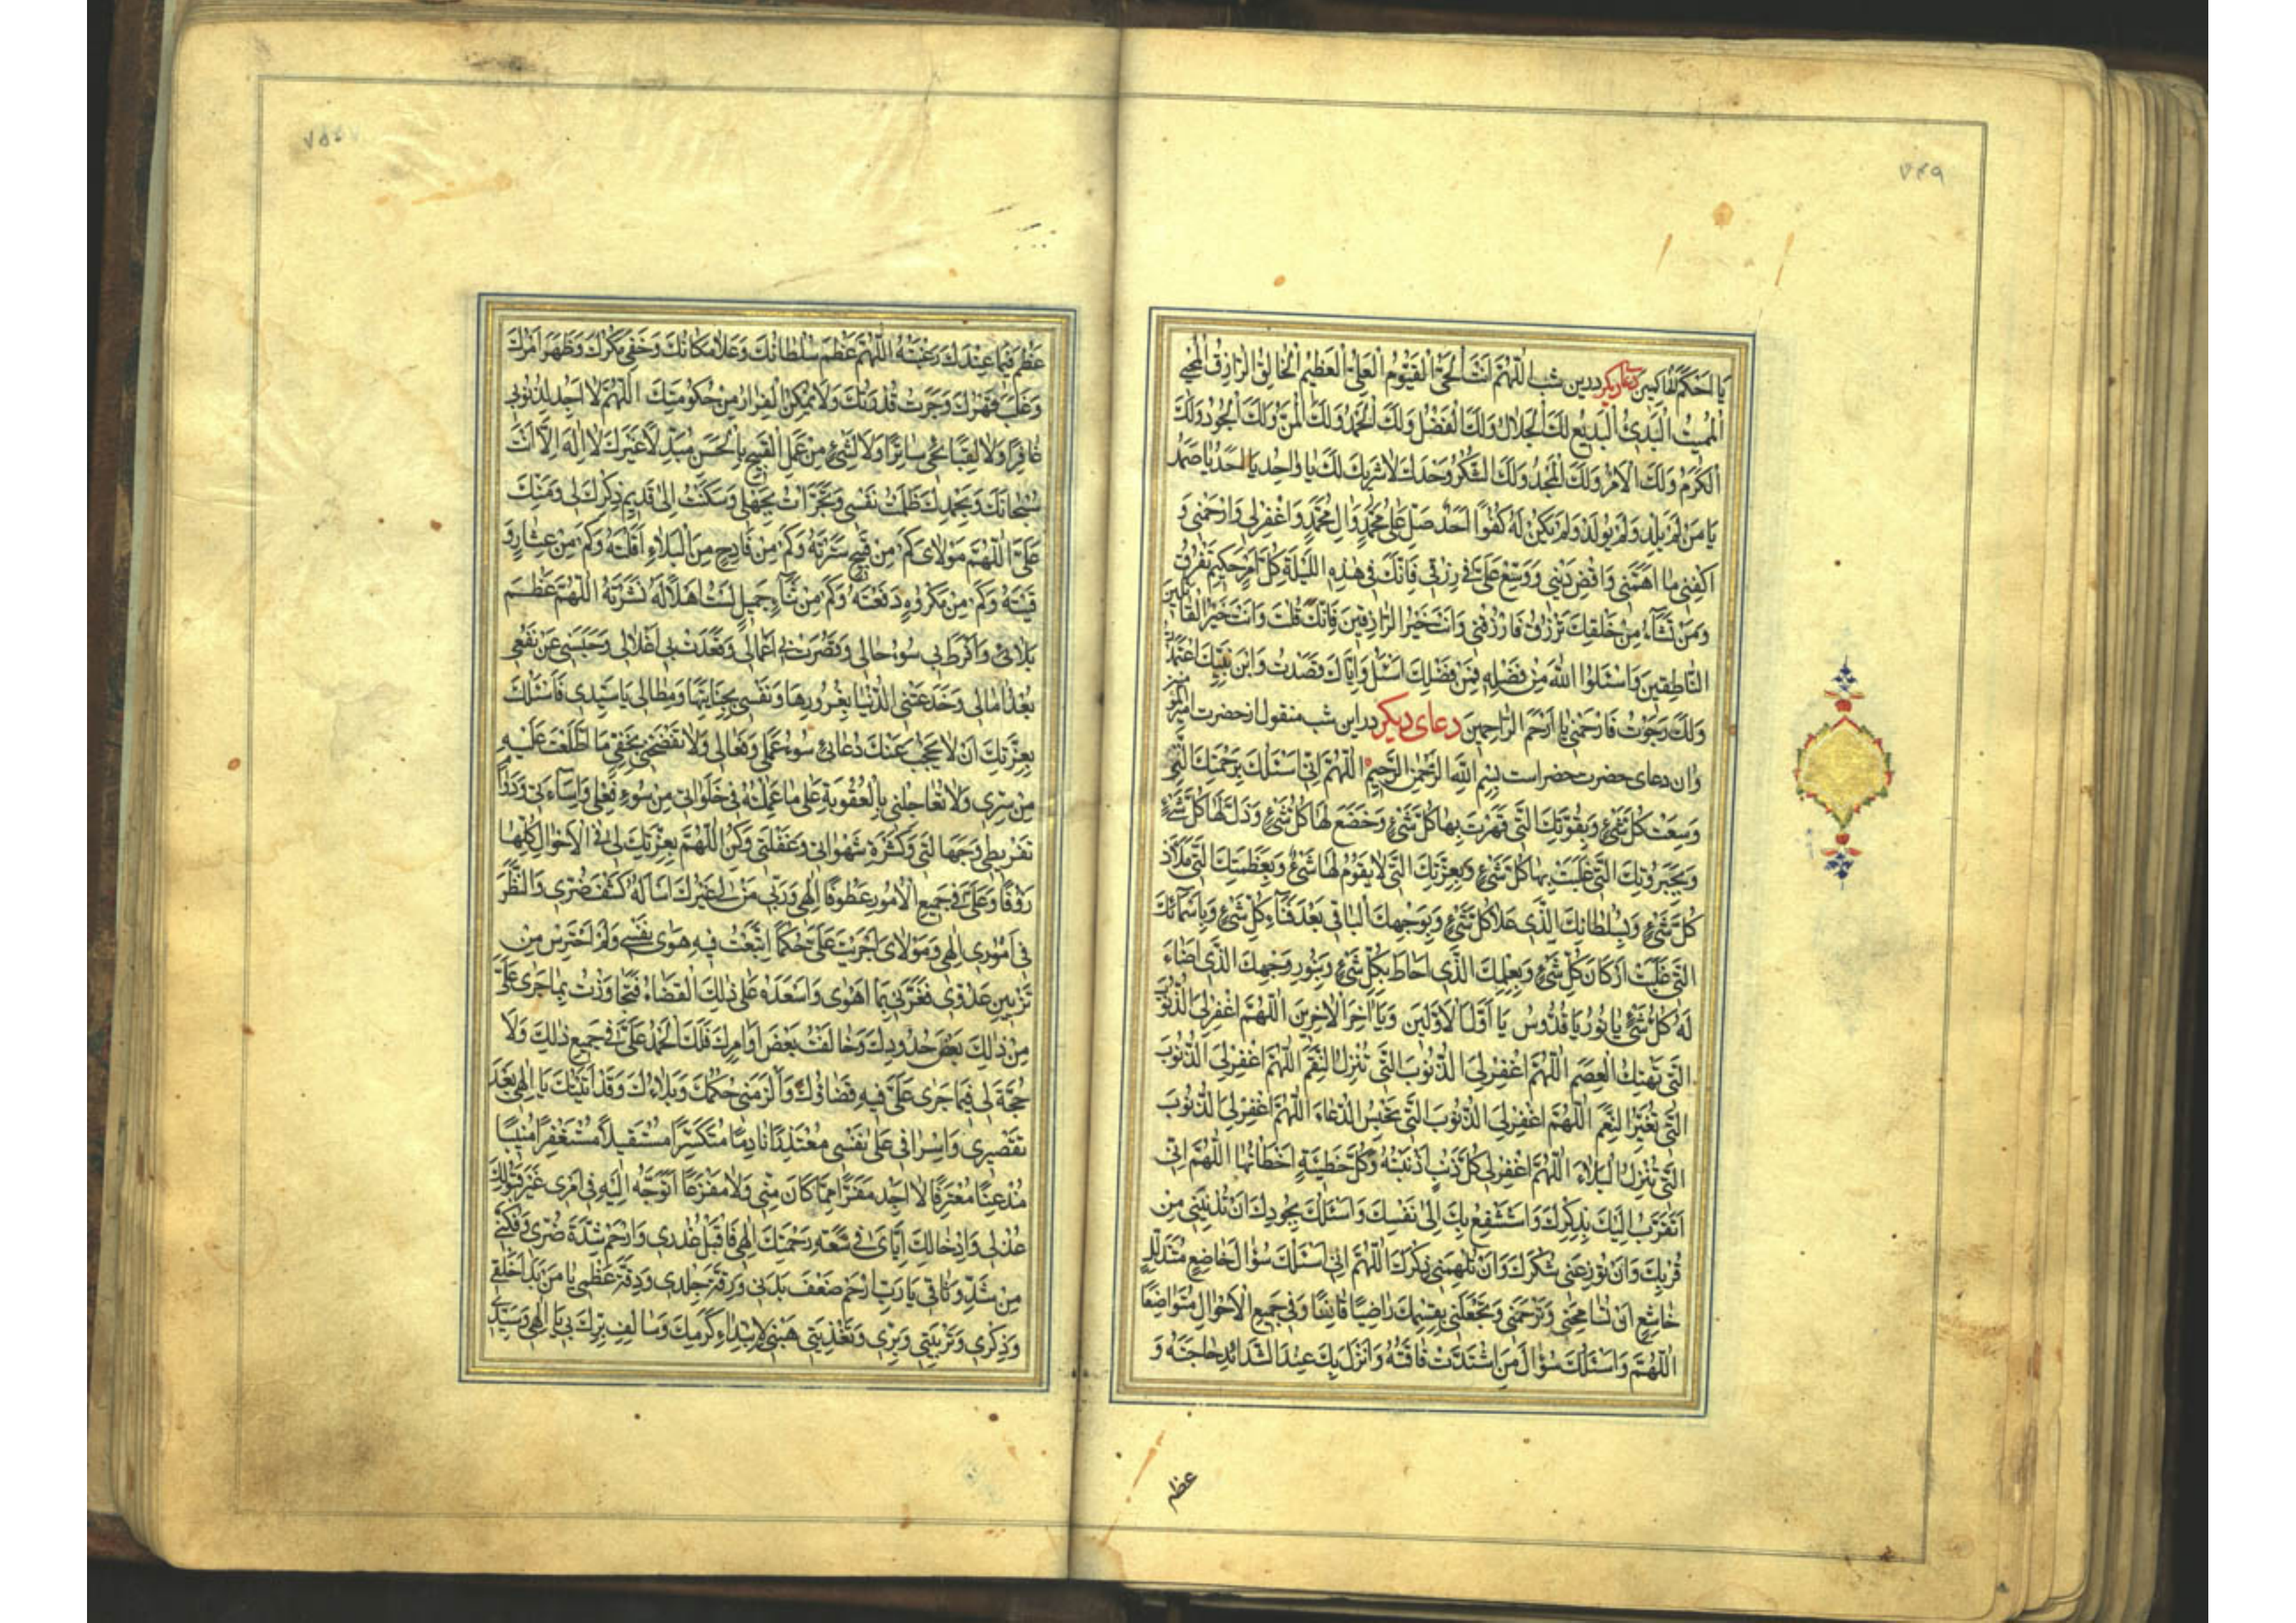 ٧٤٩
يَا اَحْكَمَ الْحَاكِمِينَ دعای دیگر درین شب اَللّٰهُمَّ اَنْتَ الْحَيُّ الْقَيُّومُ الْعَلِيُّ الْعَظِيمُ الْخَالِقُ الرَّازِقُ الْمُحْيِي
الْمُمِيتُ الْبَدِئُ الْبَدِيعُ لَكَ الْجَلَالُ وَلَكَ الْفَضْلُ وَلَكَ الْحَمْدُ وَلَكَ الْمَنُّ وَلَكَ الْجُودُ وَلَكَ
الْكَرَمُ وَلَكَ الْاَمْرُ وَلَكَ الْمَجْدُ وَلَكَ الشُّكْرُ وَحْدَكَ لَا شَرِيكَ لَكَ يَا وَاحِدُ يَا اَحَدُ يَا صَمَدُ
يَا مَنْ لَمْ يَلِدْ وَلَمْ يُولَدْ وَلَمْ يَكُنْ لَهُ كُفُوًا اَحَدٌ صَلِّ عَلٰى مُحَمَّدٍ وَاٰلِ مُحَمَّدٍ وَاغْفِرْ لِي وَارْحَمْنِي وَ
اكْفِنِي مَا اَهَمَّنِي وَاقْضِ دَيْنِي وَوَسِّعْ عَلَيَّ فِي رِزْقِي فَاِنَّكَ فِي هٰذِهِ اللَّيْلَةِ كُلَّ اَمْرٍ حَكِيمٍ تَفْرُقُ
وَمَنْ تَشَاءُ مِنْ خَلْقِكَ تَرْزُقُ فَارْزُقْنِي وَاَنْتَ خَيْرُ الرَّازِقِينَ فَاِنَّكَ قُلْتَ وَاَنْتَ خَيْرُ الْقَائِلِينَ
النَّاطِقِينَ وَاسْئَلُوا اللّٰهَ مِنْ فَضْلِهِ فَمِنْ فَضْلِكَ اَسْئَلُ وَاِيَّاكَ قَصَدْتُ وَابْنَ نَبِيِّكَ اعْتَمَدْتُ
وَلَكَ رَجَوْتُ فَارْحَمْنِي يَا اَرْحَمَ الرَّاحِمِينَ دعای دیگر در این شب منقول از حضرت امیرالمؤمنین
وان دعای حضرت خضر است بِسْمِ اللّٰهِ الرَّحْمٰنِ الرَّحِيمِ اَللّٰهُمَّ اِنِّي اَسْئَلُكَ بِرَحْمَتِكَ الَّتِي
وَسِعَتْ كُلَّ شَيْءٍ وَبِقُوَّتِكَ الَّتِي قَهَرْتَ بِهَا كُلَّ شَيْءٍ وَخَضَعَ لَهَا كُلُّ شَيْءٍ وَذَلَّ لَهَا كُلُّ شَيْءٍ
وَبِجَبَرُوتِكَ الَّتِي غَلَبْتَ بِهَا كُلَّ شَيْءٍ وَبِعِزَّتِكَ الَّتِي لَا يَقُومُ لَهَا شَيْءٌ وَبِعَظَمَتِكَ الَّتِي مَلَأَتْ
كُلَّ شَيْءٍ وَبِسُلْطَانِكَ الَّذِي عَلَا كُلَّ شَيْءٍ وَبِوَجْهِكَ الْبَاقِي بَعْدَ فَنَاءِ كُلِّ شَيْءٍ وَبِاَسْمَائِكَ
الَّتِي غَلَبَتْ اَرْكَانَ كُلِّ شَيْءٍ وَبِعِلْمِكَ الَّذِي اَحَاطَ بِكُلِّ شَيْءٍ وَبِنُورِ وَجْهِكَ الَّذِي اَضَاءَ
لَهُ كُلُّ شَيْءٍ يَا نُورُ يَا قُدُّوسُ يَا اَوَّلَ الْاَوَّلِينَ وَيَا اٰخِرَ الْاٰخِرِينَ اَللّٰهُمَّ اغْفِرْ لِيَ الذُّنُوبَ
الَّتِي تَهْتِكُ الْعِصَمَ اَللّٰهُمَّ اغْفِرْ لِيَ الذُّنُوبَ الَّتِي تُنْزِلُ النِّقَمَ اَللّٰهُمَّ اغْفِرْ لِيَ الذُّنُوبَ
الَّتِي تُغَيِّرُ النِّعَمَ اَللّٰهُمَّ اغْفِرْ لِيَ الذُّنُوبَ الَّتِي تَحْبِسُ الدُّعَاءَ اَللّٰهُمَّ اغْفِرْ لِيَ الذُّنُوبَ
الَّتِي تُنْزِلُ الْبَلَاءَ اَللّٰهُمَّ اغْفِرْ لِي كُلَّ ذَنْبٍ اَذْنَبْتُهُ وَكُلَّ خَطِيئَةٍ اَخْطَأْتُهَا اَللّٰهُمَّ اِنِّي
اَتَقَرَّبُ اِلَيْكَ بِذِكْرِكَ وَاَسْتَشْفِعُ بِكَ اِلٰى نَفْسِكَ وَاَسْئَلُكَ بِجُودِكَ اَنْ تُدْنِيَنِي مِنْ
قُرْبِكَ وَاَنْ تُوزِعَنِي شُكْرَكَ وَاَنْ تُلْهِمَنِي ذِكْرَكَ اَللّٰهُمَّ اِنِّي اَسْئَلُكَ سُؤَالَ خَاضِعٍ مُتَذَلِّلٍ
خَاشِعٍ اَنْ تُسَامِحَنِي وَتَرْحَمَنِي وَتَجْعَلَنِي بِقِسْمِكَ رَاضِيًا قَانِعًا وَفِي جَمِيعِ الْاَحْوَالِ مُتَوَاضِعًا
اَللّٰهُمَّ وَاَسْئَلُكَ سُؤَالَ مَنِ اشْتَدَّتْ فَاقَتُهُ وَاَنْزَلَ بِكَ عِنْدَ الشَّدَائِدِ حَاجَتَهُ وَ
عظم
عَظُمَ فِيمَا عِنْدَكَ رَغْبَتُهُ اَللّٰهُمَّ عَظُمَ سُلْطَانُكَ وَعَلَا مَكَانُكَ وَخَفِيَ مَكْرُكَ وَظَهَرَ اَمْرُكَ
وَغَلَبَ قَهْرُكَ وَجَرَتْ قُدْرَتُكَ وَلَا يُمْكِنُ الْفِرَارُ مِنْ حُكُومَتِكَ اَللّٰهُمَّ لَا اَجِدُ لِذُنُوبِي
غَافِرًا وَلَا لِقَبَائِحِي سَاتِرًا وَلَا لِشَيْءٍ مِنْ عَمَلِيَ الْقَبِيحِ بِالْحَسَنِ مُبَدِّلًا غَيْرَكَ لَا اِلٰهَ اِلَّا اَنْتَ
سُبْحَانَكَ وَبِحَمْدِكَ ظَلَمْتُ نَفْسِي وَتَجَرَّأْتُ بِجَهْلِي وَسَكَنْتُ اِلٰى قَدِيمِ ذِكْرِكَ لِي وَمَنِّكَ
عَلَيَّ اَللّٰهُمَّ مَوْلَايَ كَمْ مِنْ قَبِيحٍ سَتَرْتَهُ وَكَمْ مِنْ فَادِحٍ مِنَ الْبَلَاءِ اَقَلْتَهُ وَكَمْ مِنْ عِثَارٍ وَ
قَيْتَهُ وَكَمْ مِنْ مَكْرُوهٍ دَفَعْتَهُ وَكَمْ مِنْ ثَنَاءٍ جَمِيلٍ لَسْتُ اَهْلًا لَهُ نَشَرْتَهُ اَللّٰهُمَّ عَظُمَ
بَلَائِي وَاَفْرَطَ بِي سُوءُ حَالِي وَقَصُرَتْ بِي اَعْمَالِي وَقَعَدَتْ بِي اَغْلَالِي وَحَبَسَنِي عَنْ نَفْعِي
بُعْدُ اٰمَالِي وَخَدَعَتْنِي الدُّنْيَا بِغُرُورِهَا وَنَفْسِي بِجِنَايَتِهَا وَمِطَالِي يَا سَيِّدِي فَاَسْئَلُكَ
بِعِزَّتِكَ اَنْ لَا يَحْجُبَ عَنْكَ دُعَائِي سُوءُ عَمَلِي وَفِعَالِي وَلَا تَفْضَحْنِي بِخَفِيِّ مَا اطَّلَعْتَ عَلَيْهِ
مِنْ سِرِّي وَلَا تُعَاجِلْنِي بِالْعُقُوبَةِ عَلٰى مَا عَمِلْتُهُ فِي خَلَوَاتِي مِنْ سُوءِ فِعْلِي وَاِسَاءَتِي وَدَوَامِ
تَفْرِيطِي وَجَهَالَتِي وَكَثْرَةِ شَهَوَاتِي وَغَفْلَتِي وَكُنِ اللّٰهُمَّ بِعِزَّتِكَ لِي فِي الْاَحْوَالِ كُلِّهَا
رَؤُفًا وَعَلَيَّ فِي جَمِيعِ الْاُمُورِ عَطُوفًا اِلٰهِي وَرَبِّي مَنْ لِي غَيْرُكَ اَسْأَلُهُ كَشْفَ ضُرِّي وَالنَّظَرَ
فِي اُمُورِي اِلٰهِي وَمَوْلَايَ اَجْرَيْتَ عَلَيَّ حُكْمًا اتَّبَعْتُ فِيهِ هَوٰى نَفْسِي وَلَمْ اَحْتَرِسْ مِنْ
تَزْيِينِ عَدُوِّي فَغَرَّنِي بِمَا اَهْوٰى وَاَسْعَدَهُ عَلٰى ذٰلِكَ الْقَضَاءُ فَتَجَاوَزْتُ بِمَا جَرٰى عَلَيَّ
مِنْ ذٰلِكَ بَعْضَ حُدُودِكَ وَخَالَفْتُ بَعْضَ اَوَامِرِكَ فَلَكَ الْحَمْدُ عَلَيَّ فِي جَمِيعِ ذٰلِكَ وَلَا
حُجَّةَ لِي فِيمَا جَرٰى عَلَيَّ فِيهِ قَضَاؤُكَ وَاَلْزَمَنِي حُكْمُكَ وَبَلَاءُكَ وَقَدْ اَتَيْتُكَ يَا اِلٰهِي بَعْدَ
تَقْصِيرِي وَاِسْرَافِي عَلٰى نَفْسِي مُعْتَذِرًا نَادِمًا مُنْكَسِرًا مُسْتَقِيلًا مُسْتَغْفِرًا مُنِيبًا
مُذْعِنًا مُعْتَرِفًا لَا اَجِدُ مَفَرًّا مِمَّا كَانَ مِنِّي وَلَا مَفْزَعًا اَتَوَجَّهُ اِلَيْهِ فِي اَمْرِي غَيْرَ قَبُولِكَ
عُذْرِي وَاِدْخَالِكَ اِيَّايَ فِي سَعَةِ رَحْمَتِكَ اِلٰهِي فَاقْبَلْ عُذْرِي وَارْحَمْ شِدَّةَ ضُرِّي وَفُكَّنِي
مِنْ شَدِّ وَثَاقِي يَا رَبِّ ارْحَمْ ضَعْفَ بَدَنِي وَرِقَّةَ جِلْدِي وَدِقَّةَ عَظْمِي يَا مَنْ بَدَأَ خَلْقِي
وَذِكْرِي وَتَرْبِيَتِي وَبِرِّي وَتَغْذِيَتِي هَبْنِي لِابْتِدَاءِ كَرَمِكَ وَسَالِفِ بِرِّكَ بِي يَا اِلٰهِي وَسَيِّدِي